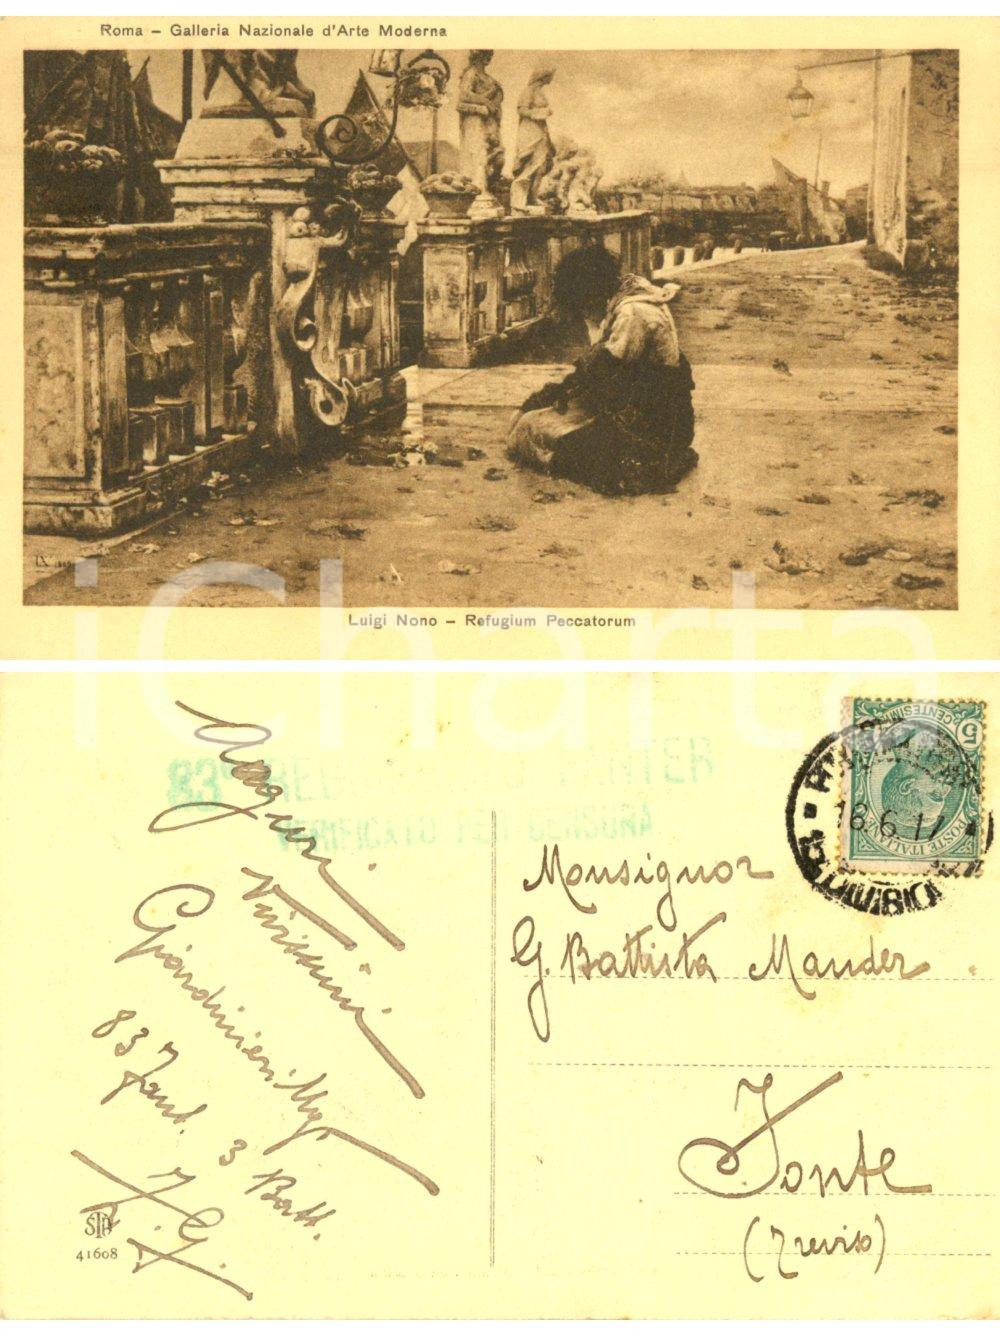 Roma – Galleria Nazionale d'Arte Moderna
Luigi Nono – Refugium Peccatorum
iCharta
83°
VERIFICATO PER CENSURA
Auguri
Vivissimi
Giardinieri
83 Fant. 3 Batt.
Z. G.
STA
41608
5
CENTESIMI
POSTE ITALIANE
18.6.17
Monsignor
G. Battista Mander
Fonte
(Treviso)